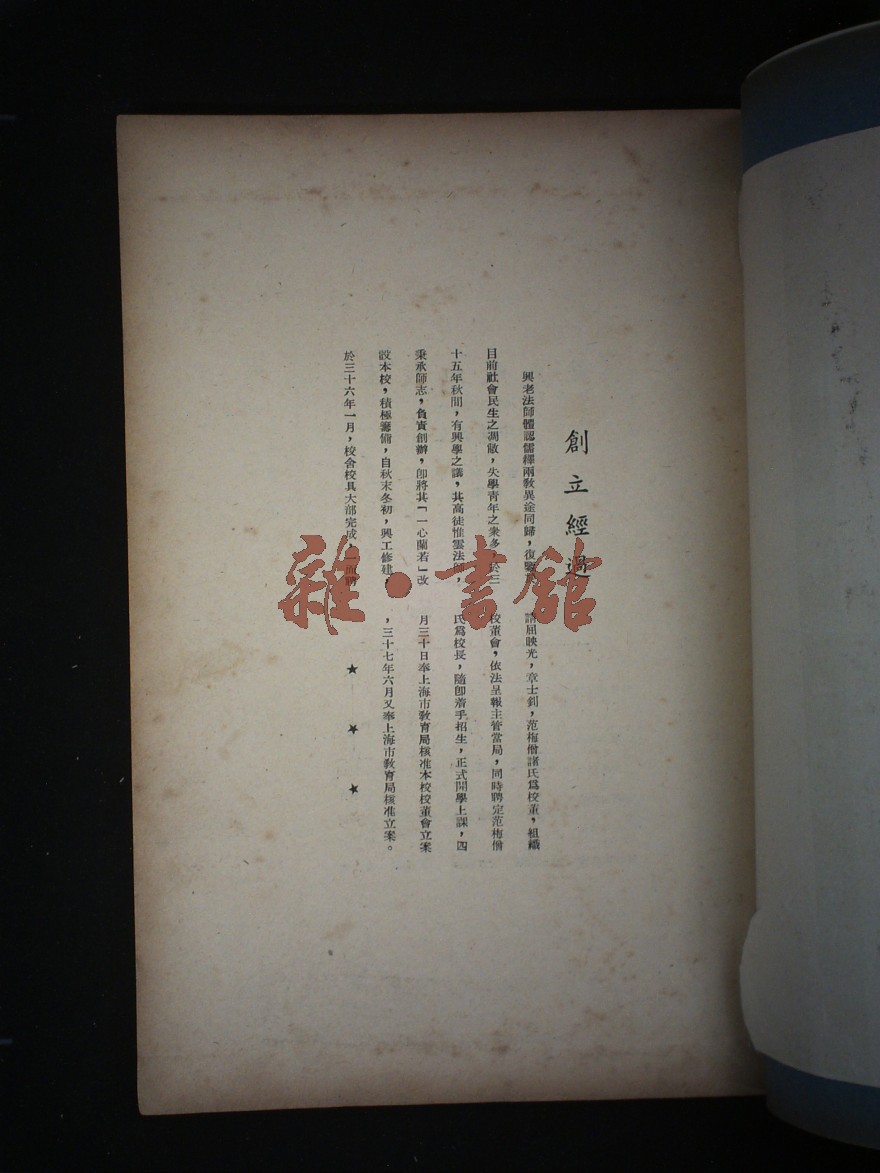 創立經過
興老法師體認儒釋兩教異途同歸，復鑒
目前社會民生之凋敝，失學青年之衆多，於三
十五年秋間，有興學之議，其高徒惟雲法師，
秉承師志，負責創辦，卽將其「一心蘭若」改
設本校，積極籌備，自秋末冬初，興工修建，
於三十六年一月，校舍校具大部完成，一面
請屈映光，章士釗，范梅僧諸氏爲校董，組織
校董會，依法呈報主管當局，同時聘定范梅僧
氏爲校長，隨卽着手招生，正式開學上課，四
月三十日奉上海市教育局核准本校校董會立案
，三十七年六月又奉上海市教育局核准立案。
★ ★ ★
雜·書館